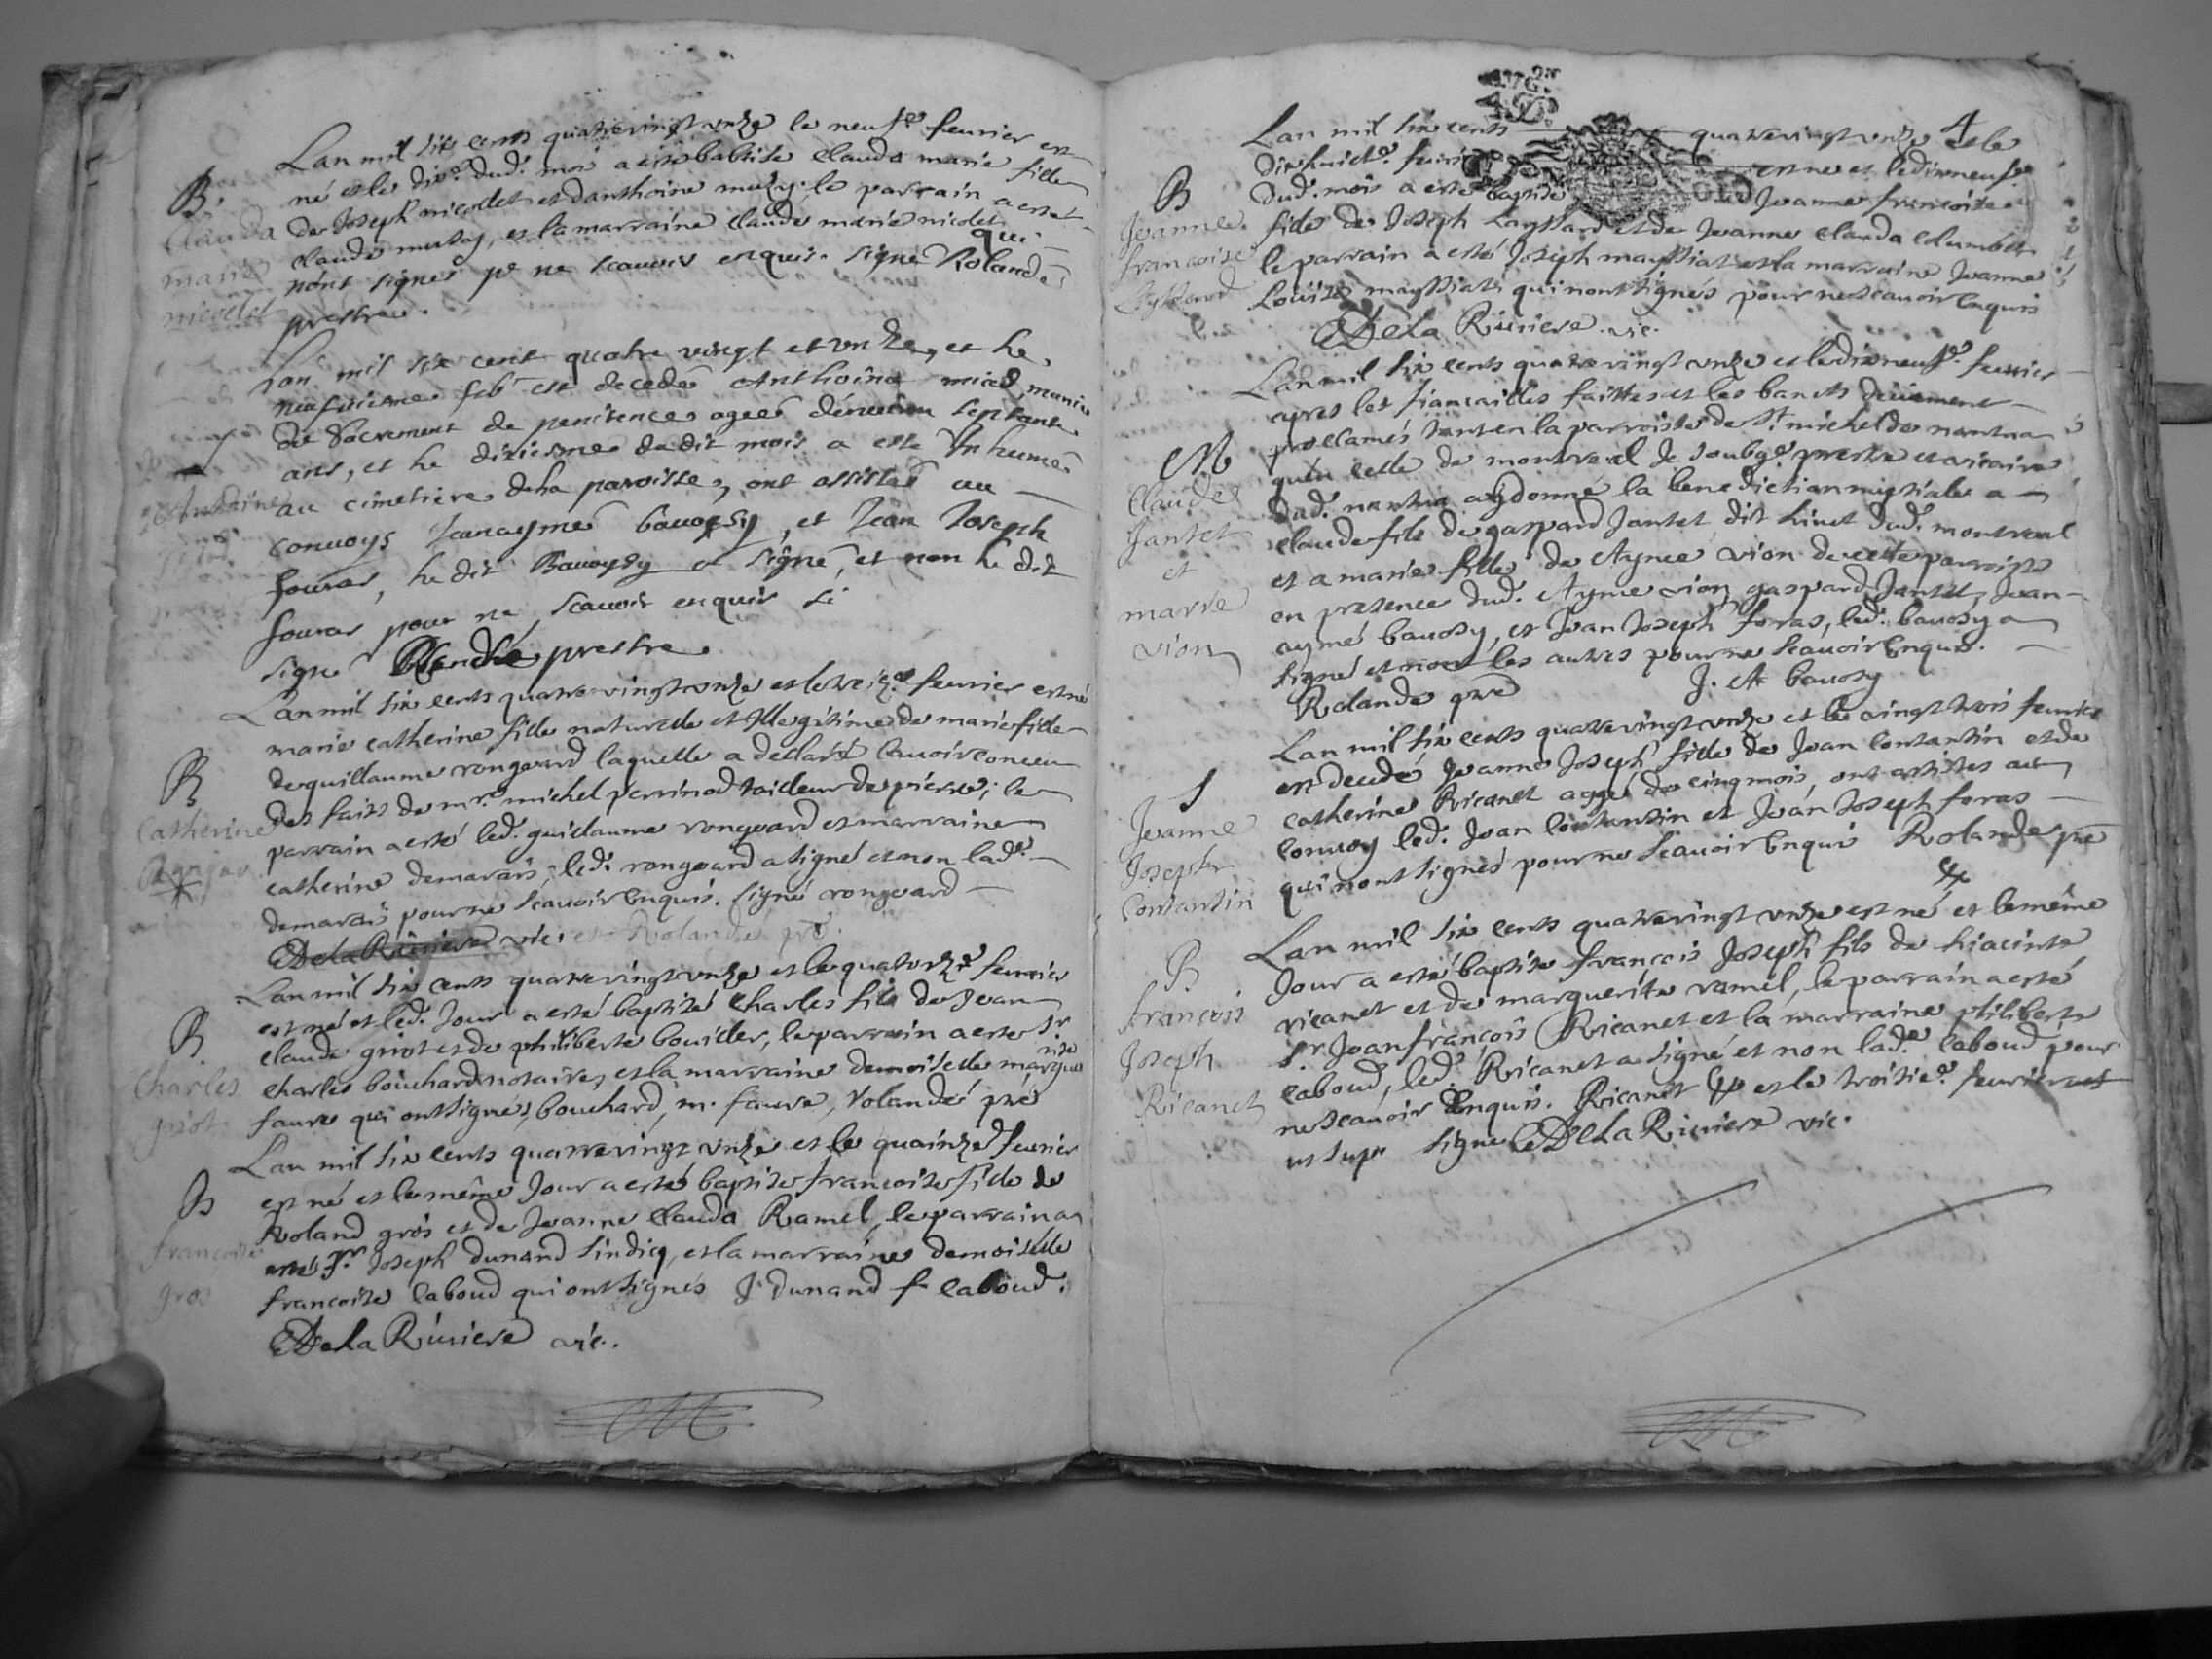 Lan mil six cents quatrevingt unze le neuf.e feurier est
B.
né et le dix.e dud. moi a este babtise Clauda marie fille
Clauda
de Joseph nicollet et danthoine muzy; le parrain a esté
marie
claude muzy, et la marraine claude marie nicolet
qui
nicollet
nónt signes p.r ne scauoir enquis. signé Rolandé
prestre.
Lan mil six cent quatre vingt et unze, et le
neufuiesme feb. est decedeé Anthoine mied munie
du Sacrement de penitence ageé denuiron septante
ans, et le diziesme dudit mois a esté Inhumeé
Anthoine
au cimetiere de la paroisse, ont assisté au
conuoys Jean aymé bauozy, et Jean Joseph
fouras, le dit Bauozy a signé, et non le dit
fouras pour ne scauoir enquis
signe prestre
Lan mil six cents quatrevingt unze et le treiz.e feurier est né
marie catherine fille naturelle et Illegitime de marie fille
B
de guillaume rongeard laquelle a declaré lauoir conceu
des faits de m.re michel perrinod tailleur de pierre; le
Catherine
parrain a esté led. guillaume rongeard et marraine
catherine demarais; led. rongeard a signé et non lad.e
demarais pour ne scauoir Enquis. signé rongeard
DelaRiuiere vic. et Rolandé pré.
Lan mil six cents quatrevingt unze et le quatorz.e feurier
est né et led. Jour a esté baptisé Charles fils de Jean
B.
claude griot et de philiberte bouiller, le parrain a esté s.r
Charles
charles bouchard notaire, et la marraine demoiselle margue
rite
griot
faure qui ont signés, bouchard, m. faure, Rolandé pré
Lan mil six cents quatrevingt unze et le quainze feurier
B
est né et le même Jour a esté baptisée francoise fille de
Roland gros et de Jeanne Clauda Ramel, le parrain a
francoise
esté s.r Joseph dunand sindiq, et la marraine demoiselle
gros
francoise Caboud qui ont signés J. dunand f Caboud.
DelaRiuiere vic.

4
Lan mil six cents quatrevingt unze et le
dixhuict.e feurier est né et le dixneuf.e
B
dud. mois a esté baptisée Jeanne francoise
Jeanne
fille de Joseph Layssard et de Jeanne Clauda Columbet
francoise
le parrain a esté Joseph mayssiat et la marraine Jeanne
Louise mayssiat, qui nont signés pour ne scauoir Enquis
DelaRiuiere. vic.
Lan mil six cents quatrevingt unze et le dixneuf.e feurier
apres les fiancailles faittes et les bancs deuement
proclamés tant en la parroisse de S.t michel de nantua
M
quen celle de montreal Je soubg.é prestre et vicaire
Claude
dud. nantua ay donné la benediction nuptiale a
Jantet
claude fils de gaspard Jantet dit hinet dud. montreal
et
et a marie fille de Aymé vion de cette parroisse
marie
en presence dud. Aymé vion, gaspard Jantet, Jean
vion
aymé bauozy, et Jean Joseph foras, led. bauozy a
signé et non les autres pour ne scauoir Enquis.
Rolandé pré J. A bauozy
Lan mil six cents quatrevingt unze et le vingt trois feurier
est decedé Jeanne Joseph fille de Jean Contantin et de
S
catherine Ricanet aggé de cinq mois, ont assistés au
Jeanne
conuoy led. Jean Contantin et Jean Joseph foras
Joseph
qui nont signés pour ne scauoir Enquis Rolandé pré
Contantin
Lan mil six cents quatrevingt unze est né et le même
B
Jour a esté baptisé françois Joseph fils de hiacinte
françois
ricanet et de marguerite ramel, le parrain a esté
Joseph
S.r Jean françois Ricanet et la marraine philiberte
Ricanet
Caboud, led. Ricanet a signé et non lad.e Caboud pour
ne scauoir Enquis. Ricanet et le troisie.e feurier
ut sup.a signé DelaRiuiere vic.